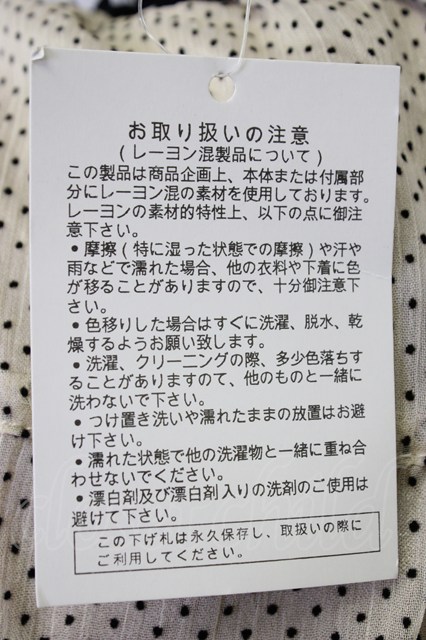 お取り扱いの注意
(レーヨン混製品について)
この製品は商品企画上、本体または付属部
分にレーヨン混の素材を使用しております。
レーヨンの素材的特性上、以下の点に御注
意下さい。
●摩擦(特に湿った状態での摩擦)や汗や
雨などで濡れた場合、他の衣料や下着に色
が移ることがありますので、十分御注意下
さい。
●色移りした場合はすぐに洗濯、脱水、乾
燥するようお願い致します。
●洗濯、クリーニングの際、多少色落ちす
ることがありますので、他のものと一緒に
洗わないで下さい。
●つけ置き洗いや濡れたままの放置はお避
け下さい。
●濡れた状態で他の洗濯物と一緒に重ね合
わせないでください。
●漂白剤及び漂白剤入りの洗剤のご使用は
避けて下さい。
この下げ札は永久保存し、取扱いの際に
ご利用してください。